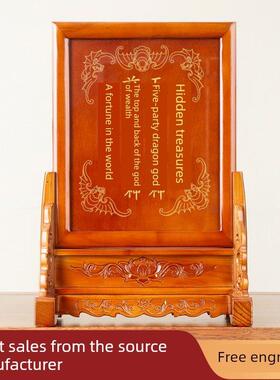 Hidden treasures
Five-party dragon god
The top and back of the god
of wealth
A fortune in the world
t sales from the source
ufacturer
Free engr